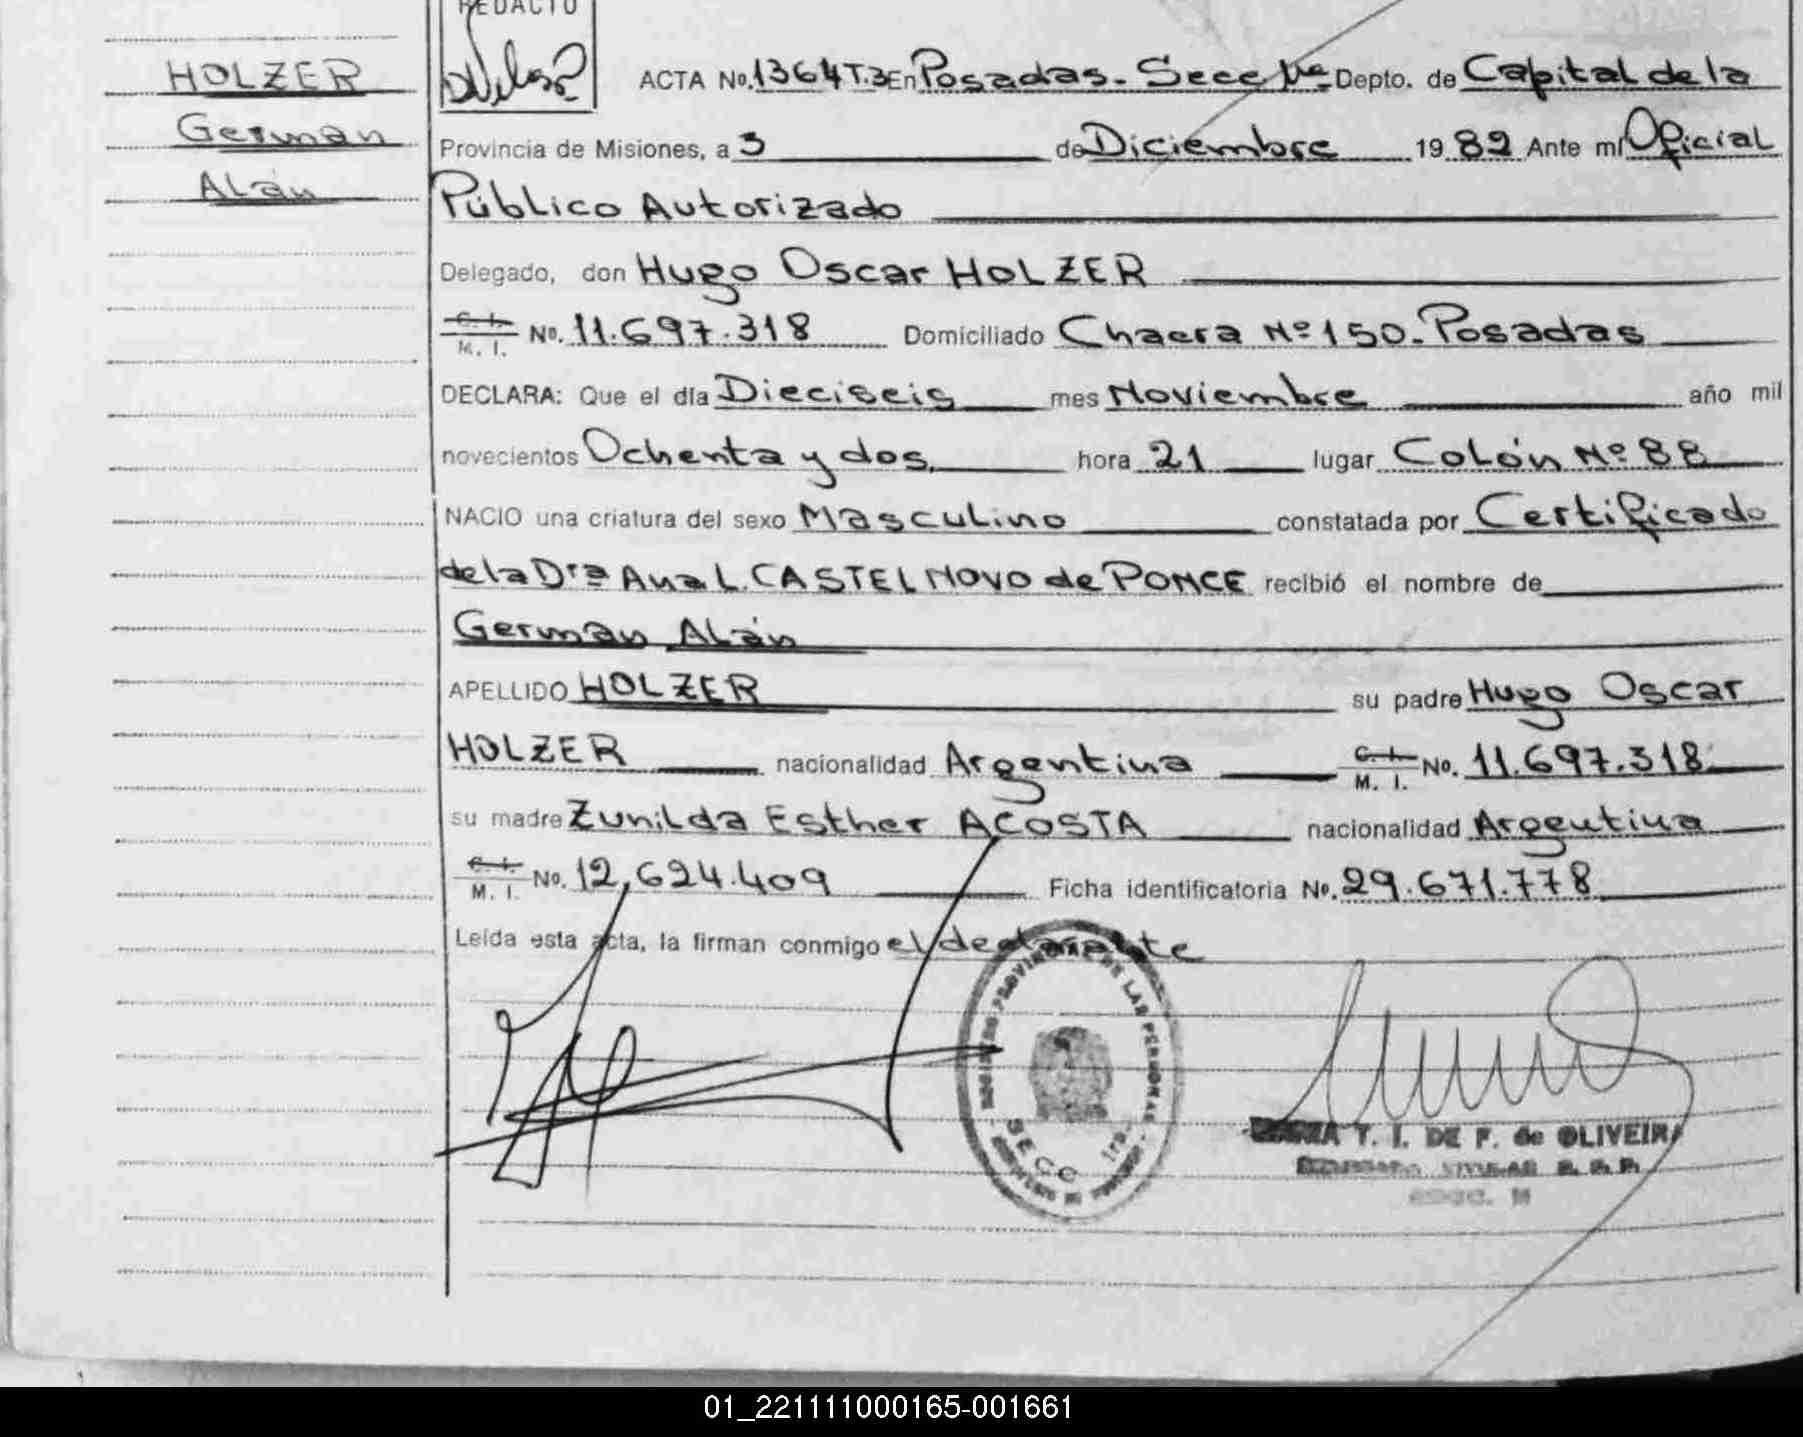 REDACTO
HOLZER
German
Alán
ACTA No. 1364 T.3 En Posadas. Secc 1ra. Depto. de Capital de la
Provincia de Misiones, a 3 de Diciembre 1982 Ante mí Oficial
Público Autorizado
Delegado, don Hugo Oscar HOLZER
C. I. M. I. No. 11.697.318 Domiciliado Chacra Nº 150. Posadas
DECLARA: Que el día Dieciseis mes Noviembre año mil
novecientos Ochenta y dos, hora 21 lugar Colón Nº 88
NACIO una criatura del sexo Masculino constatada por Certificado
de la Dra Ana L. CASTELNOVO de PONCE recibió el nombre de
German Alán
APELLIDO HOLZER su padre Hugo Oscar
HOLZER nacionalidad Argentina C. I. M. I. No. 11.697.318
su madre Zunilda Esther ACOSTA nacionalidad Argentina
C. I. M. I. No. 12.624.409 Ficha identificatoria No. 29.671.778
Leída esta acta, la firman conmigo el declarante
PROVINCIAL DE LAS PERSONAS
SECC 1ra.
T. I. DE F. de OLIVEIRA
01_221111000165-001661